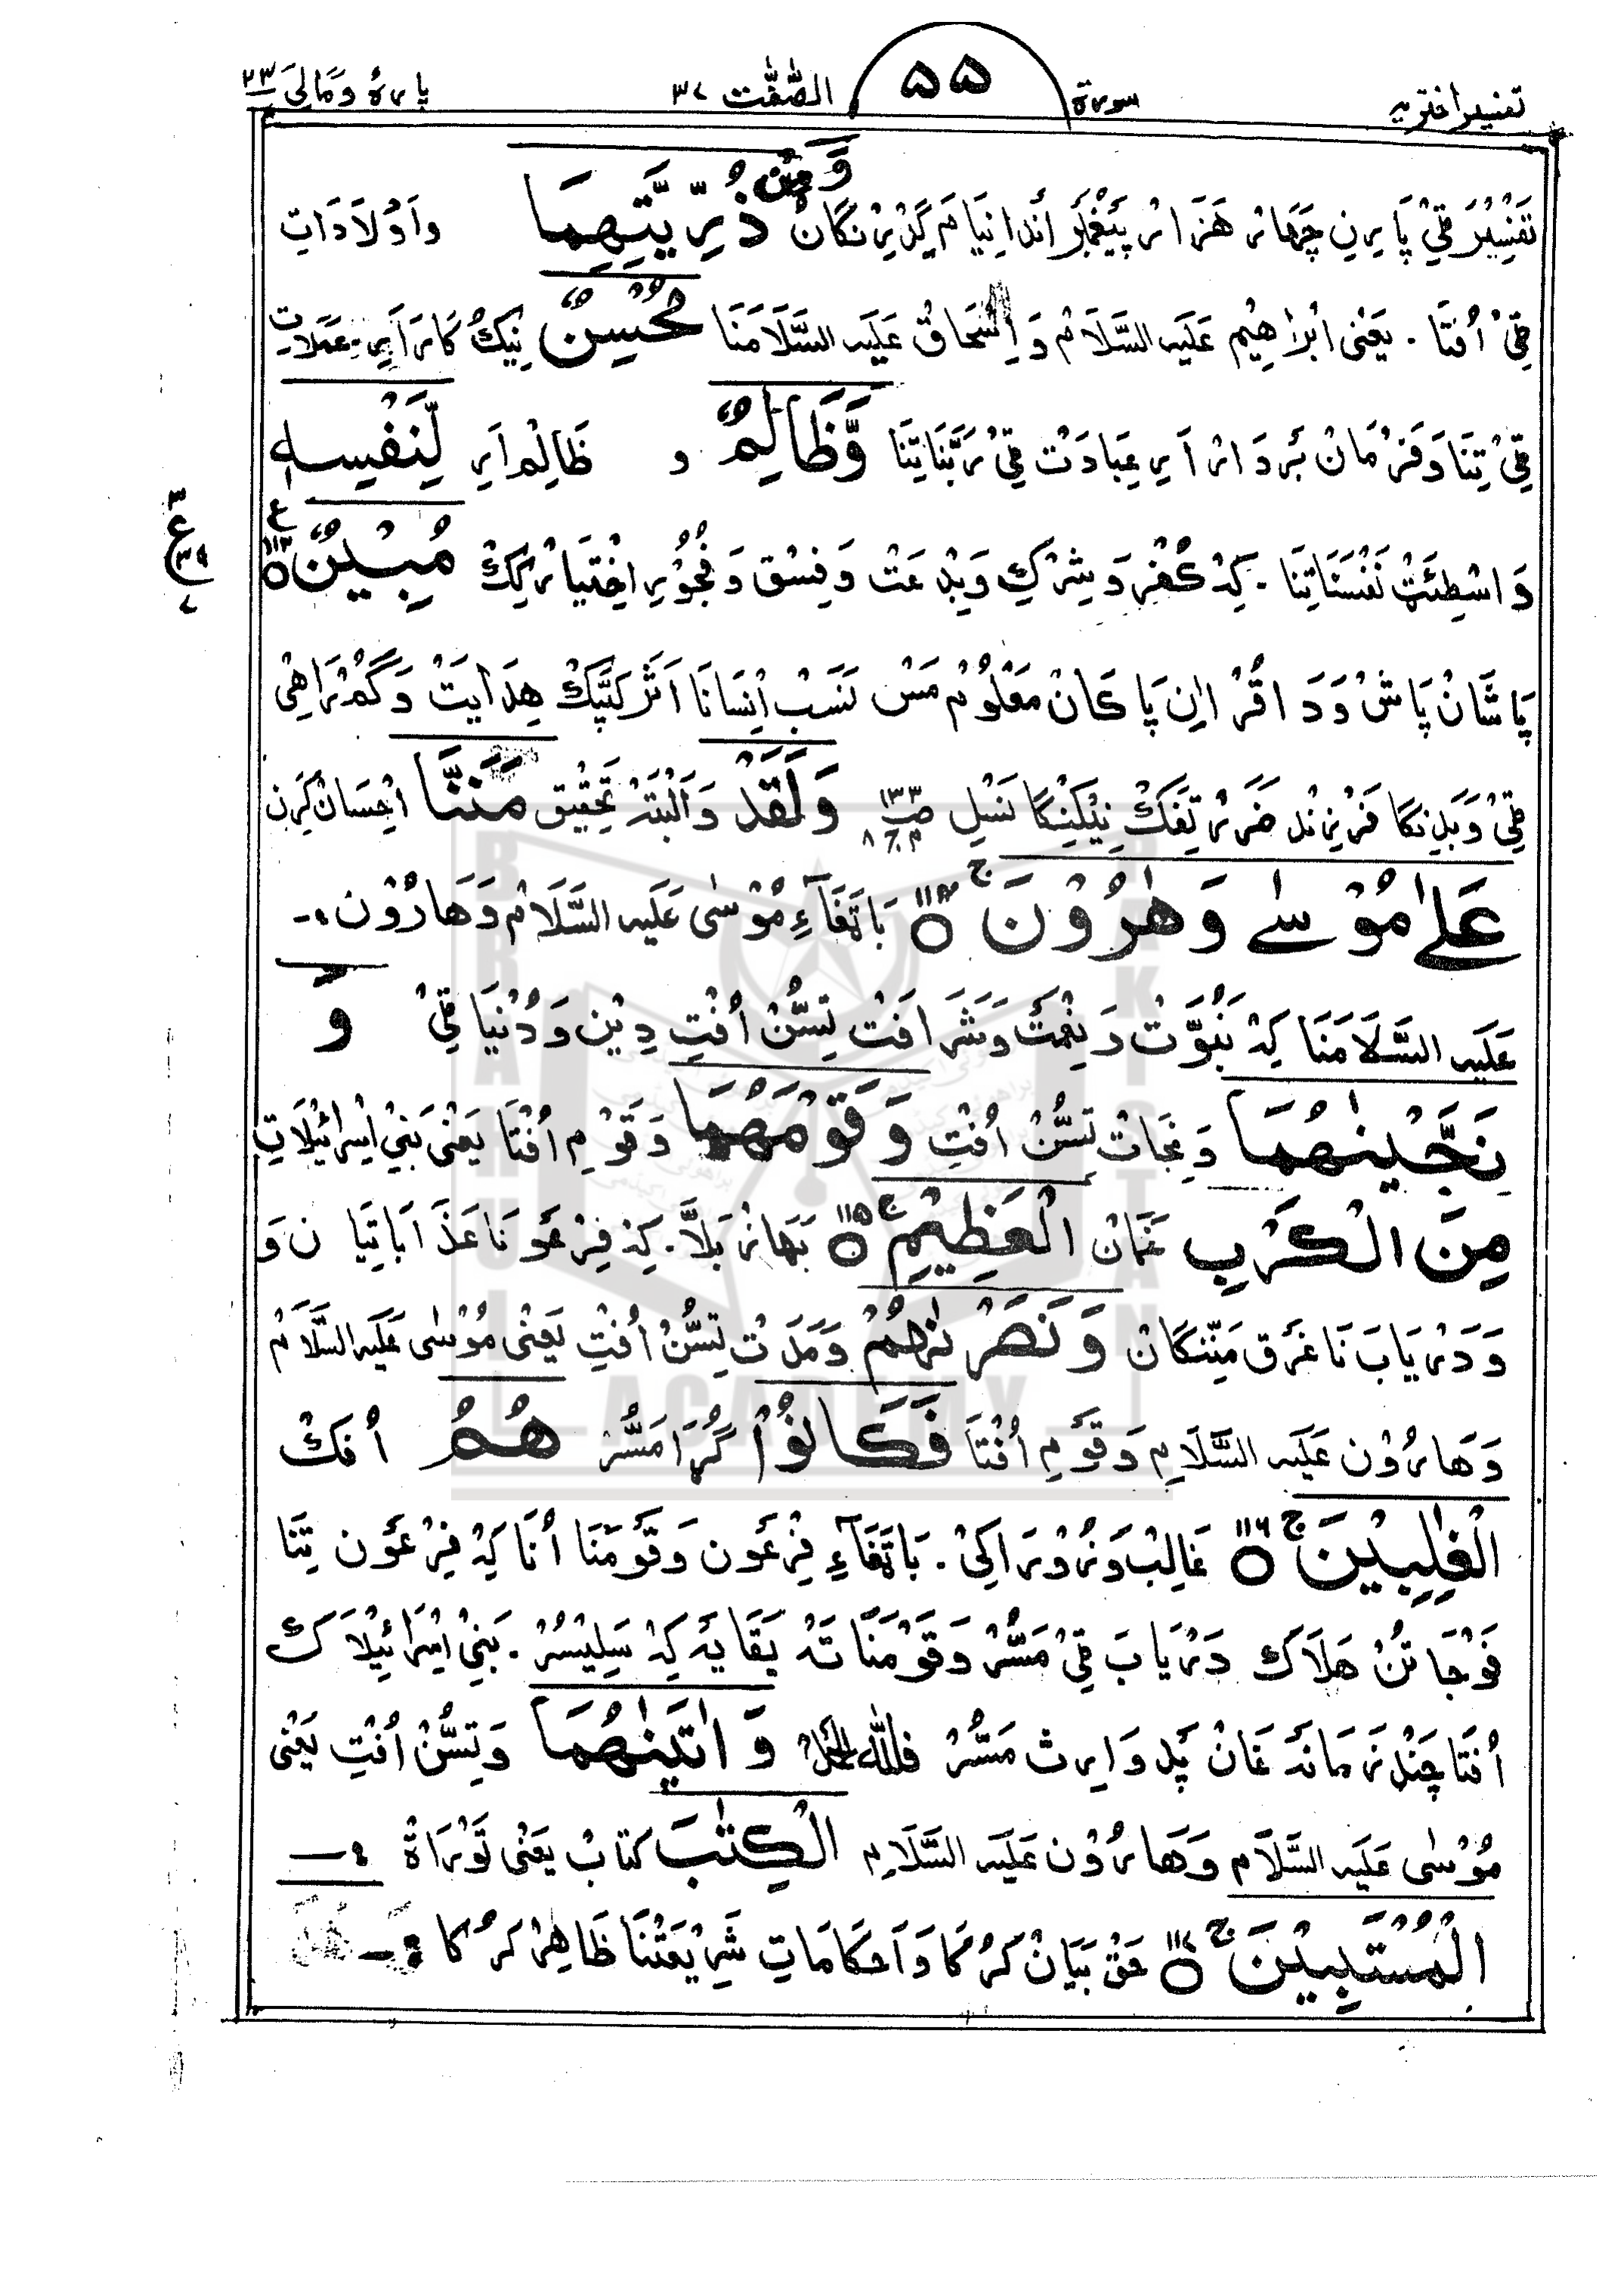 تفسیر اختریه سورة ۵۵ الصّٰفّٰت ۳۷ پاره وَمَالِیَ ۲۳
تَفْسِیْرَ ٹیْ پَارِنِ چَهَار هَزَار پَیْغَمْبَر اَنْد اِنْیَام گِدْرِنْگَانْ وَمِنْ ذُرِّيَّتِهِمَا وَاَوْلَادَاتِ
ٹیْ اُفْتَا. یَعْنِی اِبْرَاهِیْم عَلَیهِ السَّلَامْ وَ اِسْحَاقْ عَلَیهِ السَّلَامَنَا مُحْسِنٌ نِیْکْ کَارَ اَرِ. عَمَلَاتِ
ٹیْ تِنَا وَ فَرْمَانْ بَرْدَارْ اَرِ عِبَادَتْ ٹیْ رَبَّنَا تِنَا وَّظَالِمٌ و ظَالِمْ اَرِ لِّنَفْسِهٖ
وَاسْطِئَتْ نَفْسَنَا تِنَا. کِهْ کُفْر وَ شِرْکِ وَ بِدْعَتْ وَ فِسْق وَ فُجُوْرِ اِخْتِیَارْ کِکْ مُبِيْنٌ ۱۱۳ ع
پَاشَانْ پَاشْ وَ دَاقُرْ اٰنِ پَاکَانْ مَعْلُوْمْ مَسْ نَسَبْ اِنْسَانَا اَثَر کَنْپَکْ هِدَایَتْ وَ گُمْرَاهِی
ٹیْ وَ بَلِنگَا فَرْزِنْد ضَرَرْ تِفَکْ نِیْکِنْگَا نَسْلِ ۱۳۳ وَلَقَدْ وَ اَلْبَتَّهْ تَحْقِیْق مَنَنَّا اِحْسَانْ کَرِن
عَلٰى مُوْسٰى وَهٰرُوْنَ ۱۱۴ ج بَاتْقَآءِ مُوْسٰی عَلَیهِ السَّلَامْ وَ هَارُوْن
عَلَیهِ السَّلَامَنَا کِهْ نَبُوَّتْ وَ نِعْمَتْ وَ شَرَافَتْ تِسُّنْ اُفْتِ دِیْن وَ دُنْیَا ٹیْ وَ
نَجَّيْنٰهُمَا وَ نَجَاتْ تِسُّنْ اُفْتِ وَقَوْمَهُمَا وَ قَوْمِ اُفْتَا یَعْنِی بَنِیْ اِسْرَائِیْلَاتِ
مِنَ الْكَرْبِ غَمَانْ الْعَظِيْمِ ۱۱۵ ج بَهَازْ بَلَّا. کِهْ فِرْعَوْنَا عَذَابَاتِیَا نْ وَ
وَ دَرْیَابَ نَا غَرْق مَنِّنگَانْ وَنَصَرْنٰهُمْ وَ مَدَتْ تِسُّنْ اُفْتِ یَعْنِی مُوْسٰی عَلَیهِ السَّلَامْ
وَ هَارُوْن عَلَیهِ السَّلَامِ وَ قَوْمِ اُفْتَا فَكَانُوْا گُڑَا مَسُّرْ هُمُ اُفکْ
الْغٰلِبِيْنَ ۱۱۶ ج غَالِبْ وَ زُوْرَاکِیْ. بَاتْقَآءِ فِرْعَوْن وَ قَوْمَنَا اُنَا کِهْ فِرْعَوْن تِنَا
فَوْجَاتْنْ هَلَاکْ دَرْیَابَ ٹیْ مَسُّرْ وَ قَوْمَنَا تَهْ بَقَایَه کِهْ سَلِیْسُرْ. بَنِیْ اِسْرَائِیْلَاکْ
اُفْتَا چَنْد زَمَانَه غَانْ پَد وَارِثْ مَسُّرْ فَلِلّٰهِ الْحَمْدُ وَاٰتَيْنٰهُمَا وَ تِسُّنْ اُفْتِ یَعْنِی
مُوْسٰی عَلَیهِ السَّلَام وَ هَارُوْن عَلَیهِ السَّلَامِ الْكِتٰبَ کِتَابْ یَعْنِی تَوْرَاةْ
الْمُسْتَبِيْنَ ۱۱۷ ج حَقْ بَیَانْ کَرُکَا وَ اَحْکَامَاتِ شَرِیْعَتْنَا ظَاهِرْ کَرُکَا
BRAHUI ACADEMY PAKISTAN